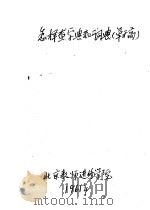 怎样查字典和词典(草稿)
北京教师进修学院
1961.